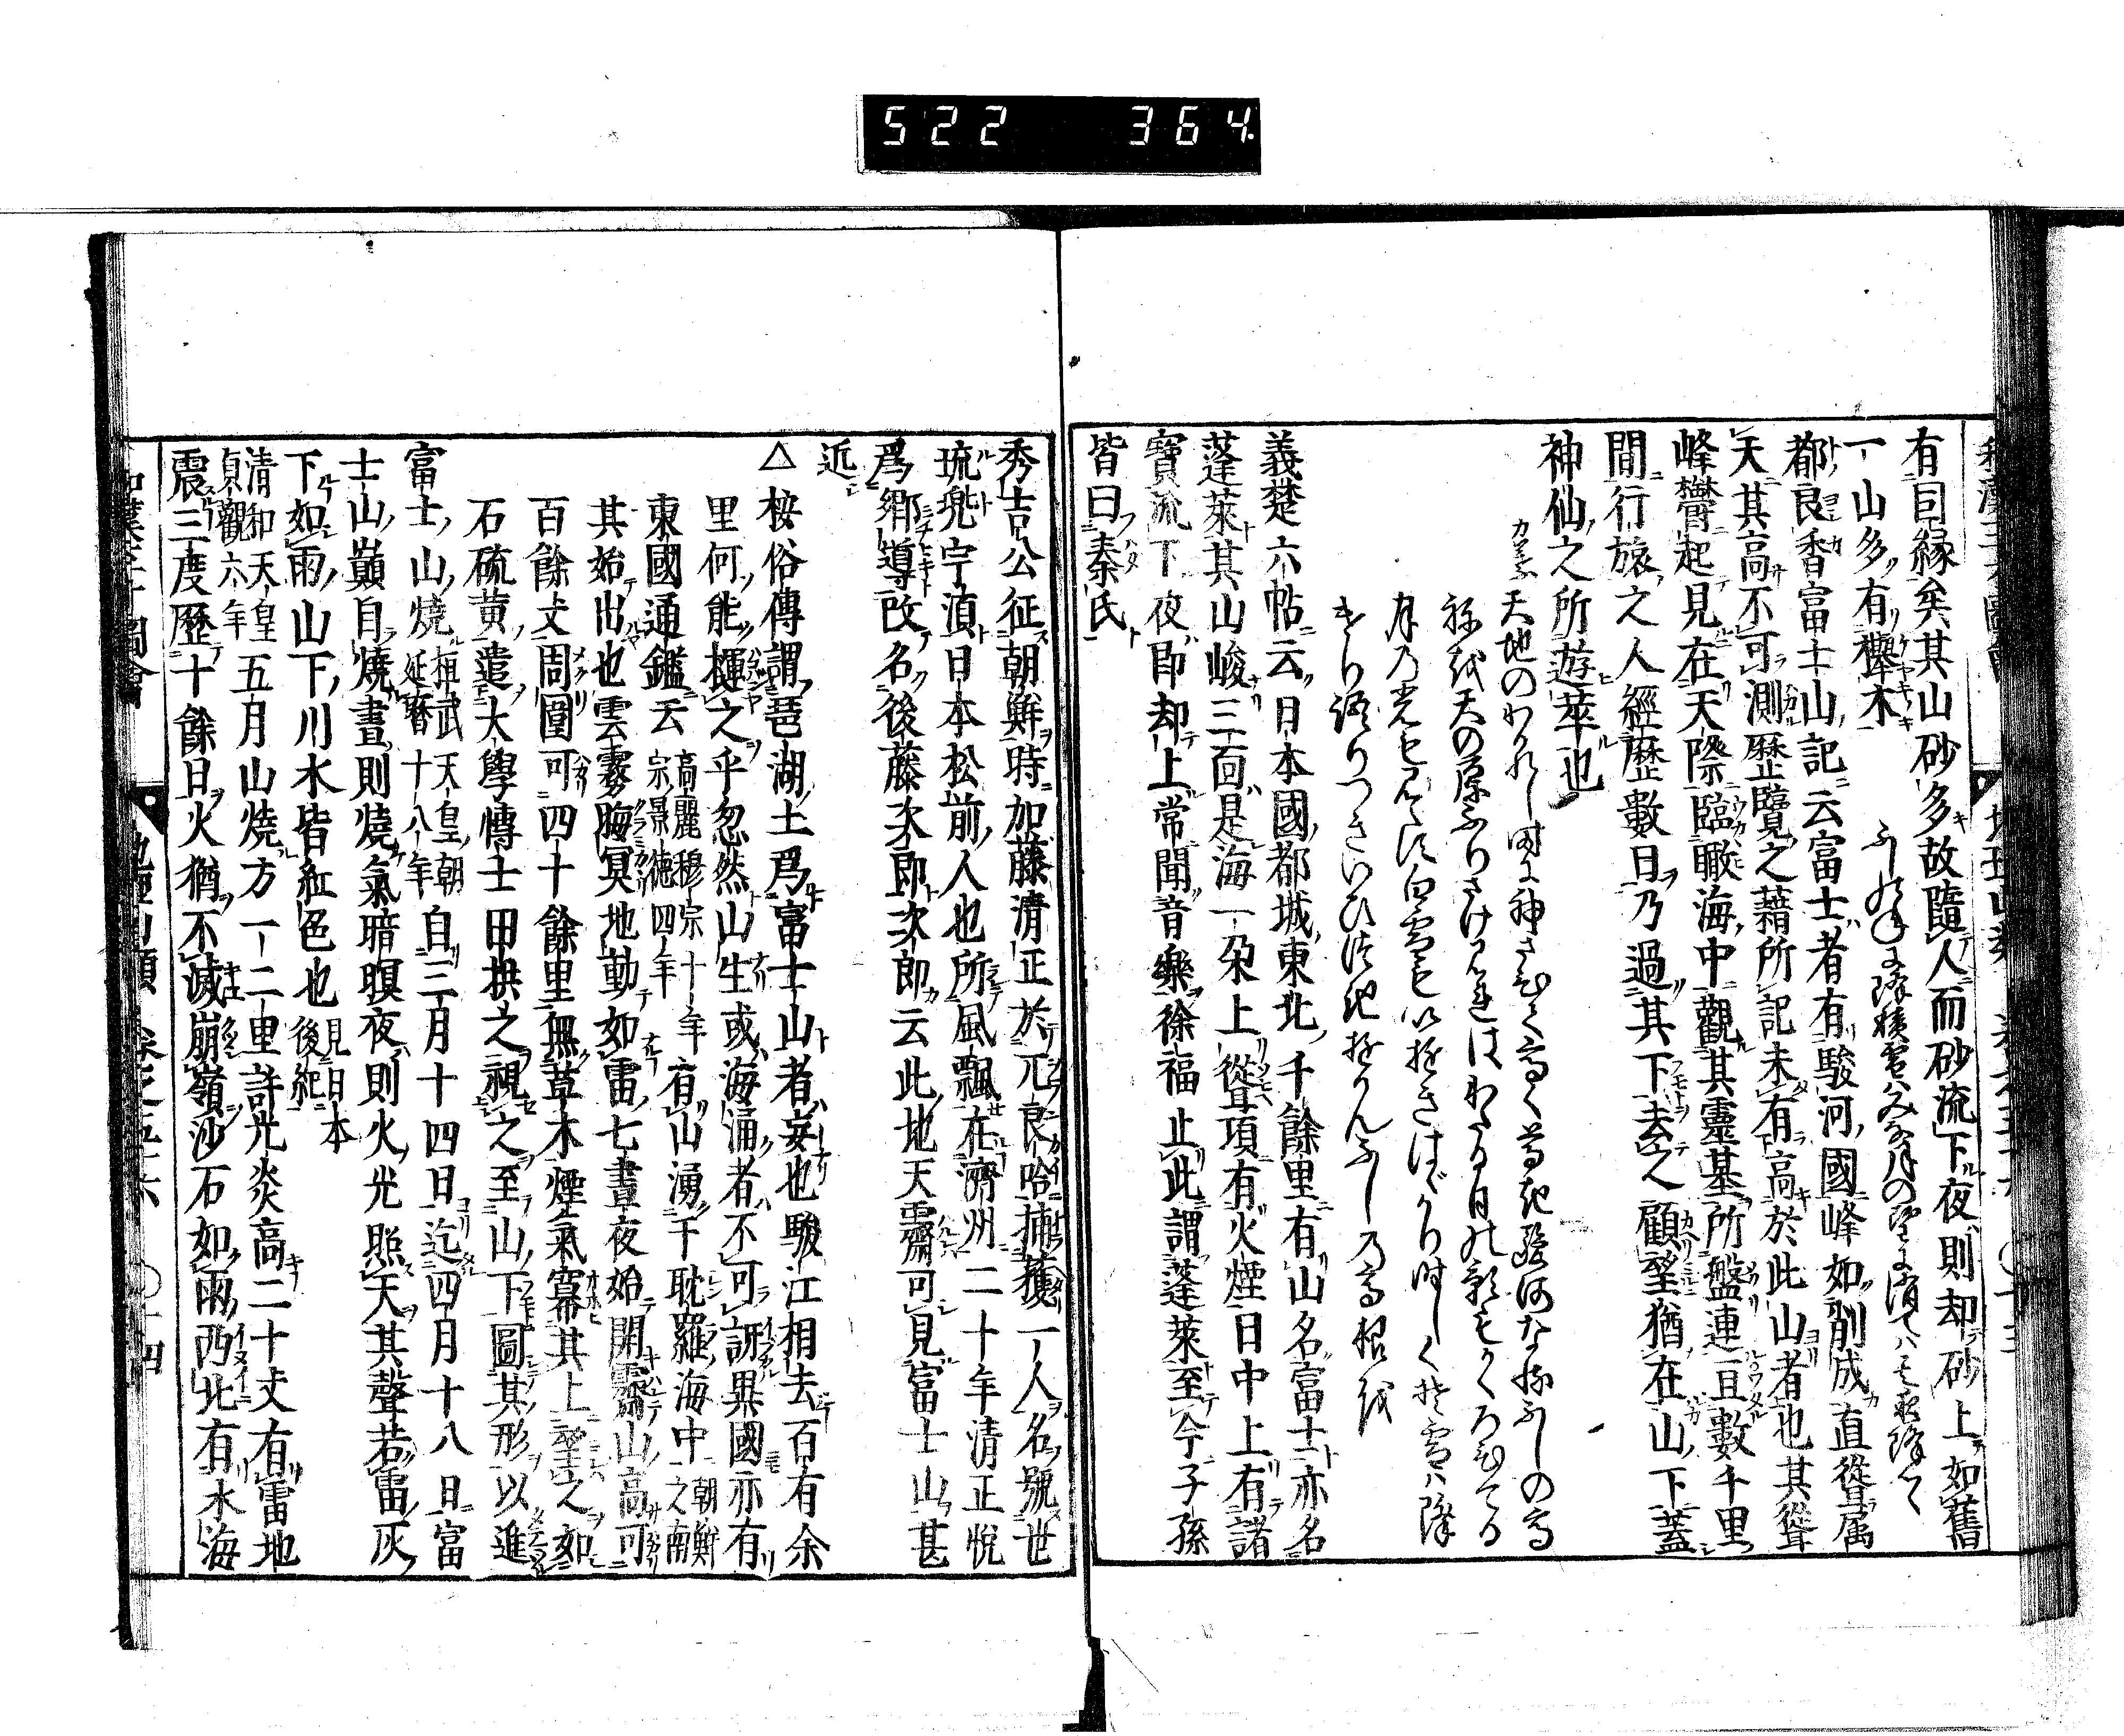 522 364
有因縁矣其山砂多故隨人而砂流下夜則却砂上如舊
一山多有欅木 ふしのねに降積雪はみな月の望に消てはその夜降けり
都良香富士山記云富士者有駿河國峰如削成直聳属
天其高不可測歴覽之藉所記未有高於此山者也其聳
峰欝起見在天際臨瞰海中觀其靈基所盤連亘數千里
間行旅之人經歷數日乃過其下去之顧望猶在山下蓋
神仙之所遊萃也
天地のわかれし時に神さひて高く尊き駿河なるふしの高
ねを天の原ふりさけみれはわたる日の影もかくろひてる
月乃光も見へす白雲もいゆきはゞかり時しくそ雪は降
けり語りつきいひつき行かんふし乃高根を
義楚六帖云日本國都城東北千餘里有山名富士亦名
蓬萊其山峻三面是海一朶上聳頂有火煙日中上有諸
寶流下夜即却上常聞音樂徐福止此謂蓬萊至今子孫
皆曰秦氏
秀吉公征朝鮮時加藤清正於兀良哈捕獲一人名號世
琉兜宇湏日本松前人也所風飄在濟州二十年清正悅
爲郷導改名後藤次郎次郎云此地天霽可見富士山甚
近
△桉俗傳謂琶湖土爲富士山者妄也駿江相去百有余
里何能䡴之乎忽然山生或海涌者不可訝異國亦有
東國通鑑云高麗穆宗十年有山湧于耽羅海中朝鮮之南宗景徳四年
其始出也雲霧晦冥地動如雷七晝夜始開霽山高可
百餘丈周圍可四十餘里無草木煙氣羃其上望之如
石硫黄遣大學博士田拱之視之至山下圖其形以進
富士山燒桓武天皇朝延暦十八年自三月十四日迄四月十八日富
士山巓自燒晝則燒氣暗暝夜則火光照天其聲若雷灰
下如雨山下川水皆紅色也見日本後紀
清和天皇貞觀六年五月山燒方一二里許光炎高二十丈有雷地
震三度歷十餘日火猶不滅崩嶺沙石如雨西北有水海